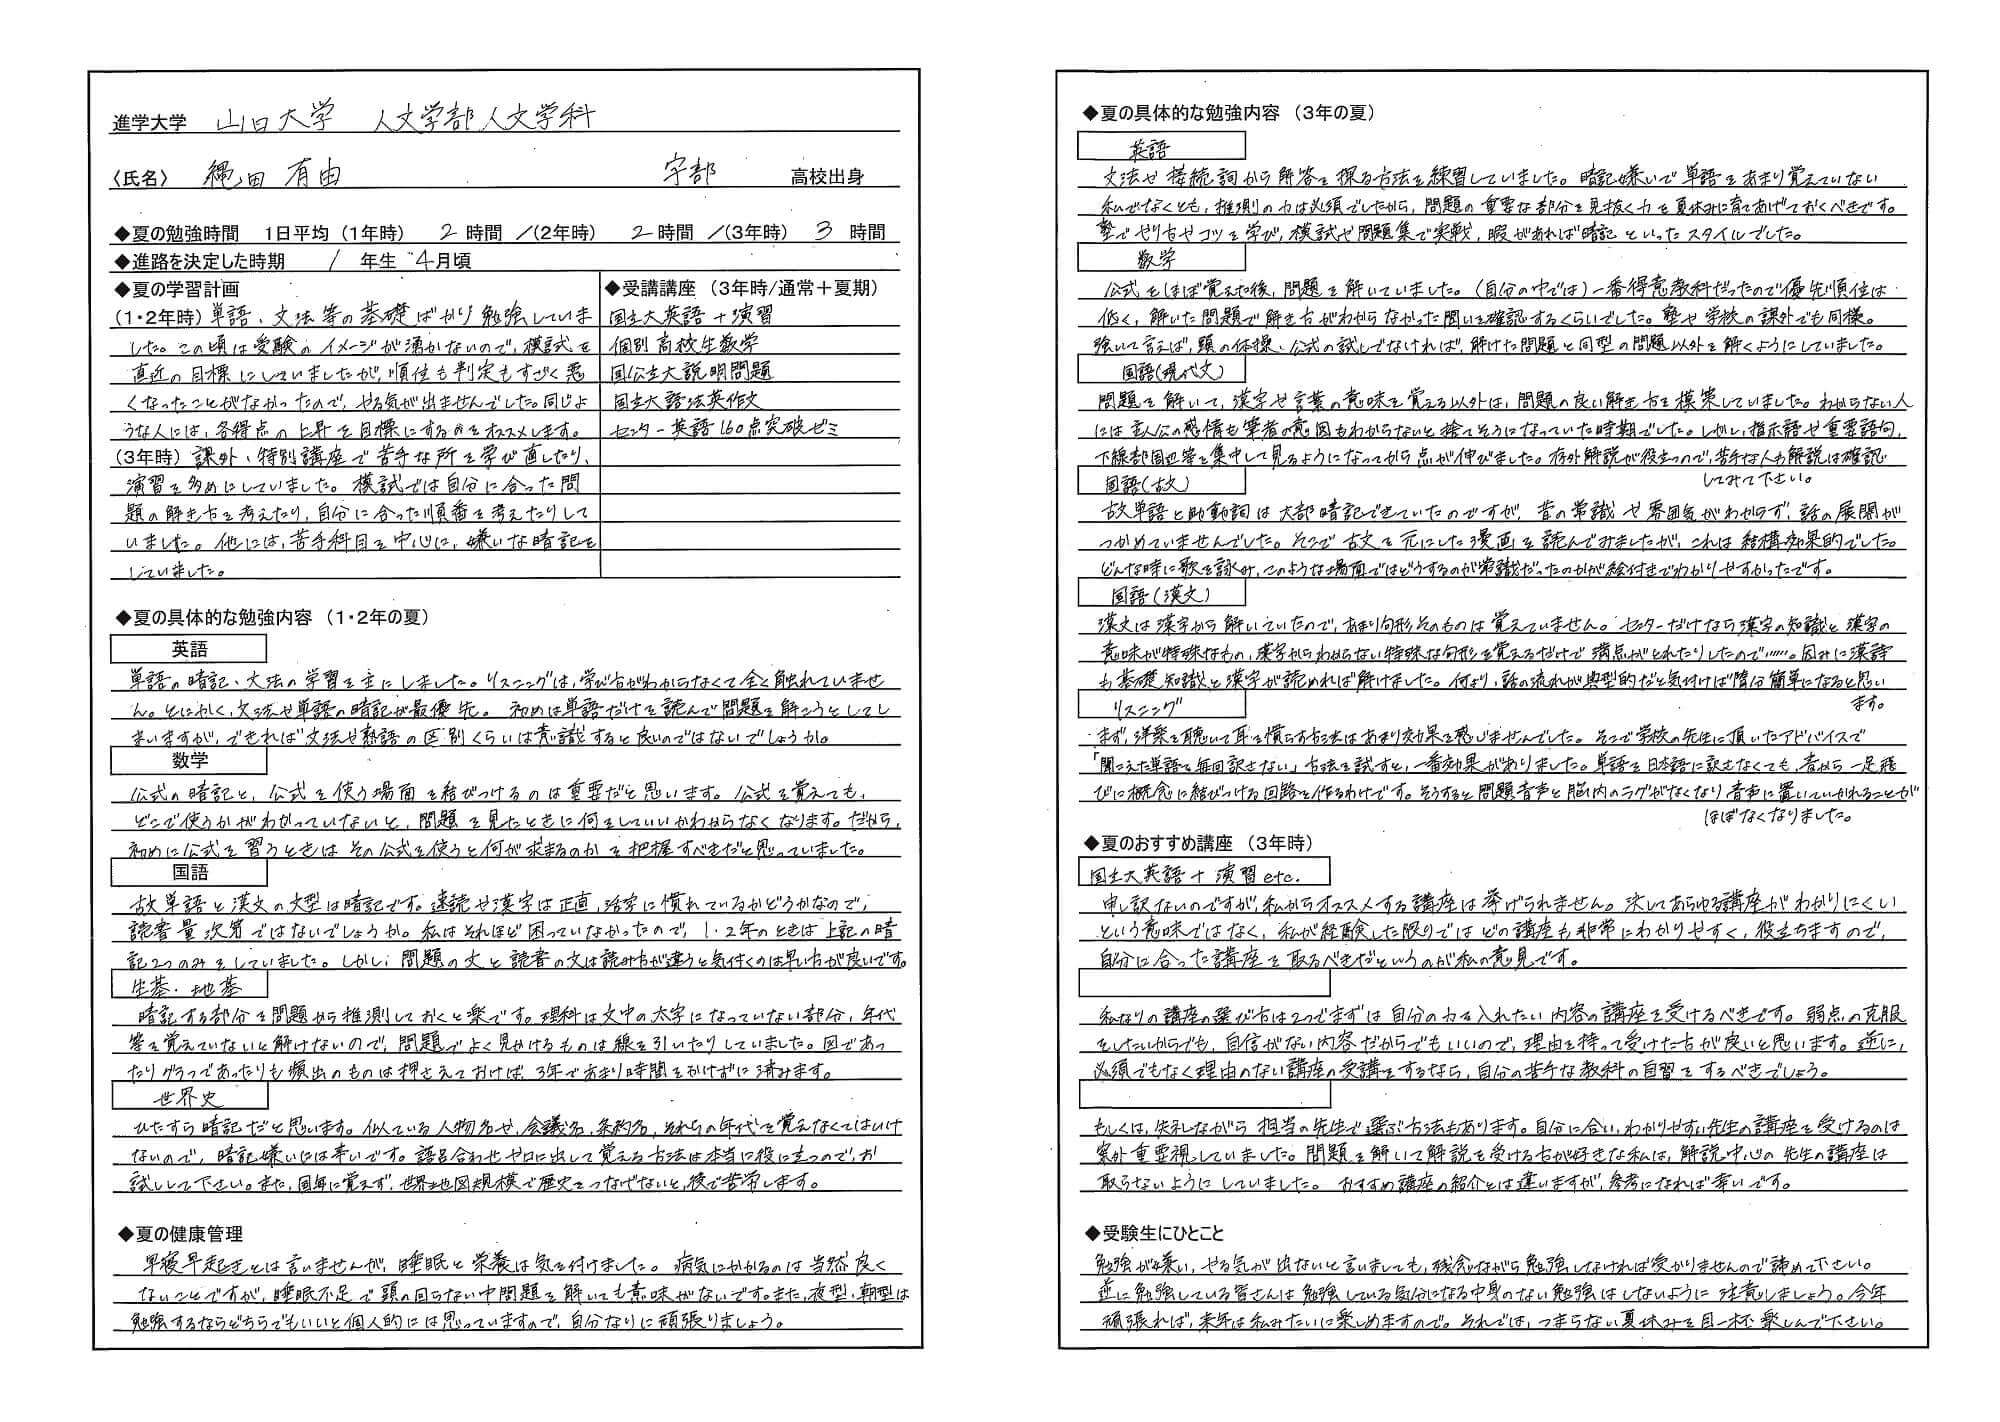 進学大学 山口大学 人文学部人文学科
〈氏名〉 縄田 有由 宇部 高校出身
◆夏の勉強時間 1日平均（1年時） 2 時間 /（2年時） 2 時間 /（3年時） 3 時間
◆進路を決定した時期 1 年生 4月頃
◆夏の学習計画
（1・2年時）単語、文法等の基礎ばかり勉強していま
した。この頃は受験のイメージが湧かないので、模試を
直近の目標にしていましたが、順位も判定もすごく悪
くなったことがなかったので、やる気が出ませんでした。同じよ
うな人には、各得点の上昇を目標にするのをオススメします。
（3年時）課外、特別講座で苦手な所を学び直したり、
演習を多めにしていました。模試では自分に合った問
題の解き方を考えたり、自分に合った順番を考えたりして
いました。他には、苦手科目を中心に、嫌いな暗記を
していました。
◆受講講座（3年時/通常＋夏期）
国立大英語＋演習
個別高校生数学
国公立大説明問題
国立大語法英作文
センター英語160点突破ゼミ
◆夏の具体的な勉強内容（1・2年の夏）
英語
単語の暗記、文法の学習を主にしました。リスニングは、学び方がわからなくて全く触れていませ
ん。とにかく、文法や単語の暗記が最優先。初めは単語だけを読んで問題を解こうとしてし
まいますが、できれば文法や熟語の区別くらいは意識すると良いのではないでしょうか。
数学
公式の暗記と、公式を使う場面を結びつけるのは重要だと思います。公式を覚えても、
どこで使うかがわかっていないと、問題を見たときに何をしていいかわからなくなります。だから、
初めに公式を習うときはその公式を使うと何が求まるのかを把握すべきだと思っていました。
国語
古文単語と漢文の文型は暗記です。速読や漢字は正直、活字に慣れているかどうかなので、
読書量次第ではないでしょうか。私はそれほど困っていなかったので、1・2年のときは上記の暗
記2つのみをしていました。しかし、問題の文と読書の文は読み方が違うと気付くのは早い方が良いです。
生基・地基
暗記する部分を問題から推測しておくと楽です。理科は文中の太字になっていない部分、年代
等を覚えていないと解けないので、問題でよく見かけるものは線を引いたりしていました。図であっ
たりグラフであったりも頻出のものは押さえておけば、3年であまり時間をかけずに済みます。
世界史
ひたすら暗記だと思います。似ている人物名や、会議名、条約名、それらの年代を覚えなくてはいけ
ないので、暗記嫌いには辛いです。語呂合わせや口に出して覚える方法は本当に役に立つので、お
試しして下さい。また、国毎に覚えず、世界地図規模で歴史をつなげないと、後で苦労します。
◆夏の健康管理
早寝早起きとは言いませんが、睡眠と栄養は気を付けました。病気にかかるのは当然良く
ないことですが、睡眠不足で頭の回らない中問題を解いても意味がないです。また、夜型、朝型は
勉強するならどちらでもいいと個人的には思っていますので、自分なりに頑張りましょう。
◆夏の具体的な勉強内容（3年の夏）
英語
文法や接続詞から解答を探る方法を練習していました。暗記嫌いで単語をあまり覚えていない
私でなくとも、推測の力は必須でしたから、問題の重要な部分を見抜く力を夏休みに育てあげておくべきです。
塾でやり方やコツを学び、模試や問題集で実戦、暇があれば暗記といったスタイルでした。
数学
公式をほぼ覚えた後、問題を解いていました。（自分の中では）一番得意教科だったので優先順位は
低く、解いた問題で解き方がわからなかった問いを確認するくらいでした。塾や学校の課外でも同様。
強いて言えば、頭の体操、公式の試しでなければ、解けた問題と同型の問題以外を解くようにしていました。
国語（現代文）
問題を解いて、漢字や言葉の意味を覚える以外は、問題の良い解き方を模索していました。わからない人
には主人公の感情も筆者の意図もわからないと捨てそうになっていた時期でした。しかし、指示語や重要語句、
下線部周辺等を集中して見るようになってから点が伸びました。存外解説が役立つので、苦手な人も解説は確認
してみて下さい。
国語（古文）
古文単語と助動詞は大部暗記できていたのですが、昔の常識や雰囲気がわからず、話の展開が
つかめていませんでした。そこで古文を元にした漫画を読んでみましたが、これは結構効果的でした。
どんな時に歌を詠み、このような場面ではどうするのが常識だったのかが絵付きでわかりやすかったです。
国語（漢文）
漢文は漢字から解いていたので、あまり句形そのものは覚えていません。センターだけなら漢字の知識と漢字の
意味が特殊なもの、漢字からわからない特殊な句形を覚えるだけで満点がとれたりしたので……。因みに漢詩
も基礎知識と漢字が読めれば解けました。何より、話の流れが典型的だと気付けば随分簡単になると思い
ます。
リスニング
まず、洋楽を聴いて耳を慣らす方法はあまり効果を感じませんでした。そこで学校の先生に頂いたアドバイスで
「聞こえた単語を毎回訳さない」方法を試すと、一番効果がありました。単語を日本語に訳さなくても、音から一足飛
びに概念に結びつける回路を作るわけです。そうすると問題音声と脳内のラグがなくなり音声に置いていかれることが
ほぼなくなりました。
◆夏のおすすめ講座（3年時）
国立大英語＋演習etc.
申し訳ないのですが、私からオススメする講座は挙げられません。決してあらゆる講座がわかりにくい
という意味ではなく、私が経験した限りではどの講座も非常にわかりやすく、役立ちますので、
自分に合った講座を取るべきだというのが私の意見です。
私なりの講座の選び方は2つでまずは自分の力を入れたい内容の講座を受けるべきです。弱点の克服
をしたいからでも、自信がない内容だからでもいいので、理由を持って受けた方が良いと思います。逆に、
必須でもなく理由のない講座の受講をするなら、自分の苦手な教科の自習をするべきでしょう。
もしくは、失礼ながら担当の先生で選ぶ方法もあります。自分に合い、わかりやすい先生の講座を受けるのは
案外重要視していました。問題を解いて解説を受ける方が好きな私は、解説中心の先生の講座は
取らないようにしていました。おすすめ講座の紹介とは違いますが、参考になれば幸いです。
◆受験生にひとこと
勉強が嫌い、やる気が出ないと言いましても、残念ながら勉強しなければ受かりませんので諦めて下さい。
逆に勉強している皆さんは勉強している気分になる中身のない勉強はしないように注意しましょう。今年
頑張れば、来年は私みたいに楽しめますので。それでは、つまらない夏休みを目一杯楽しんで下さい。